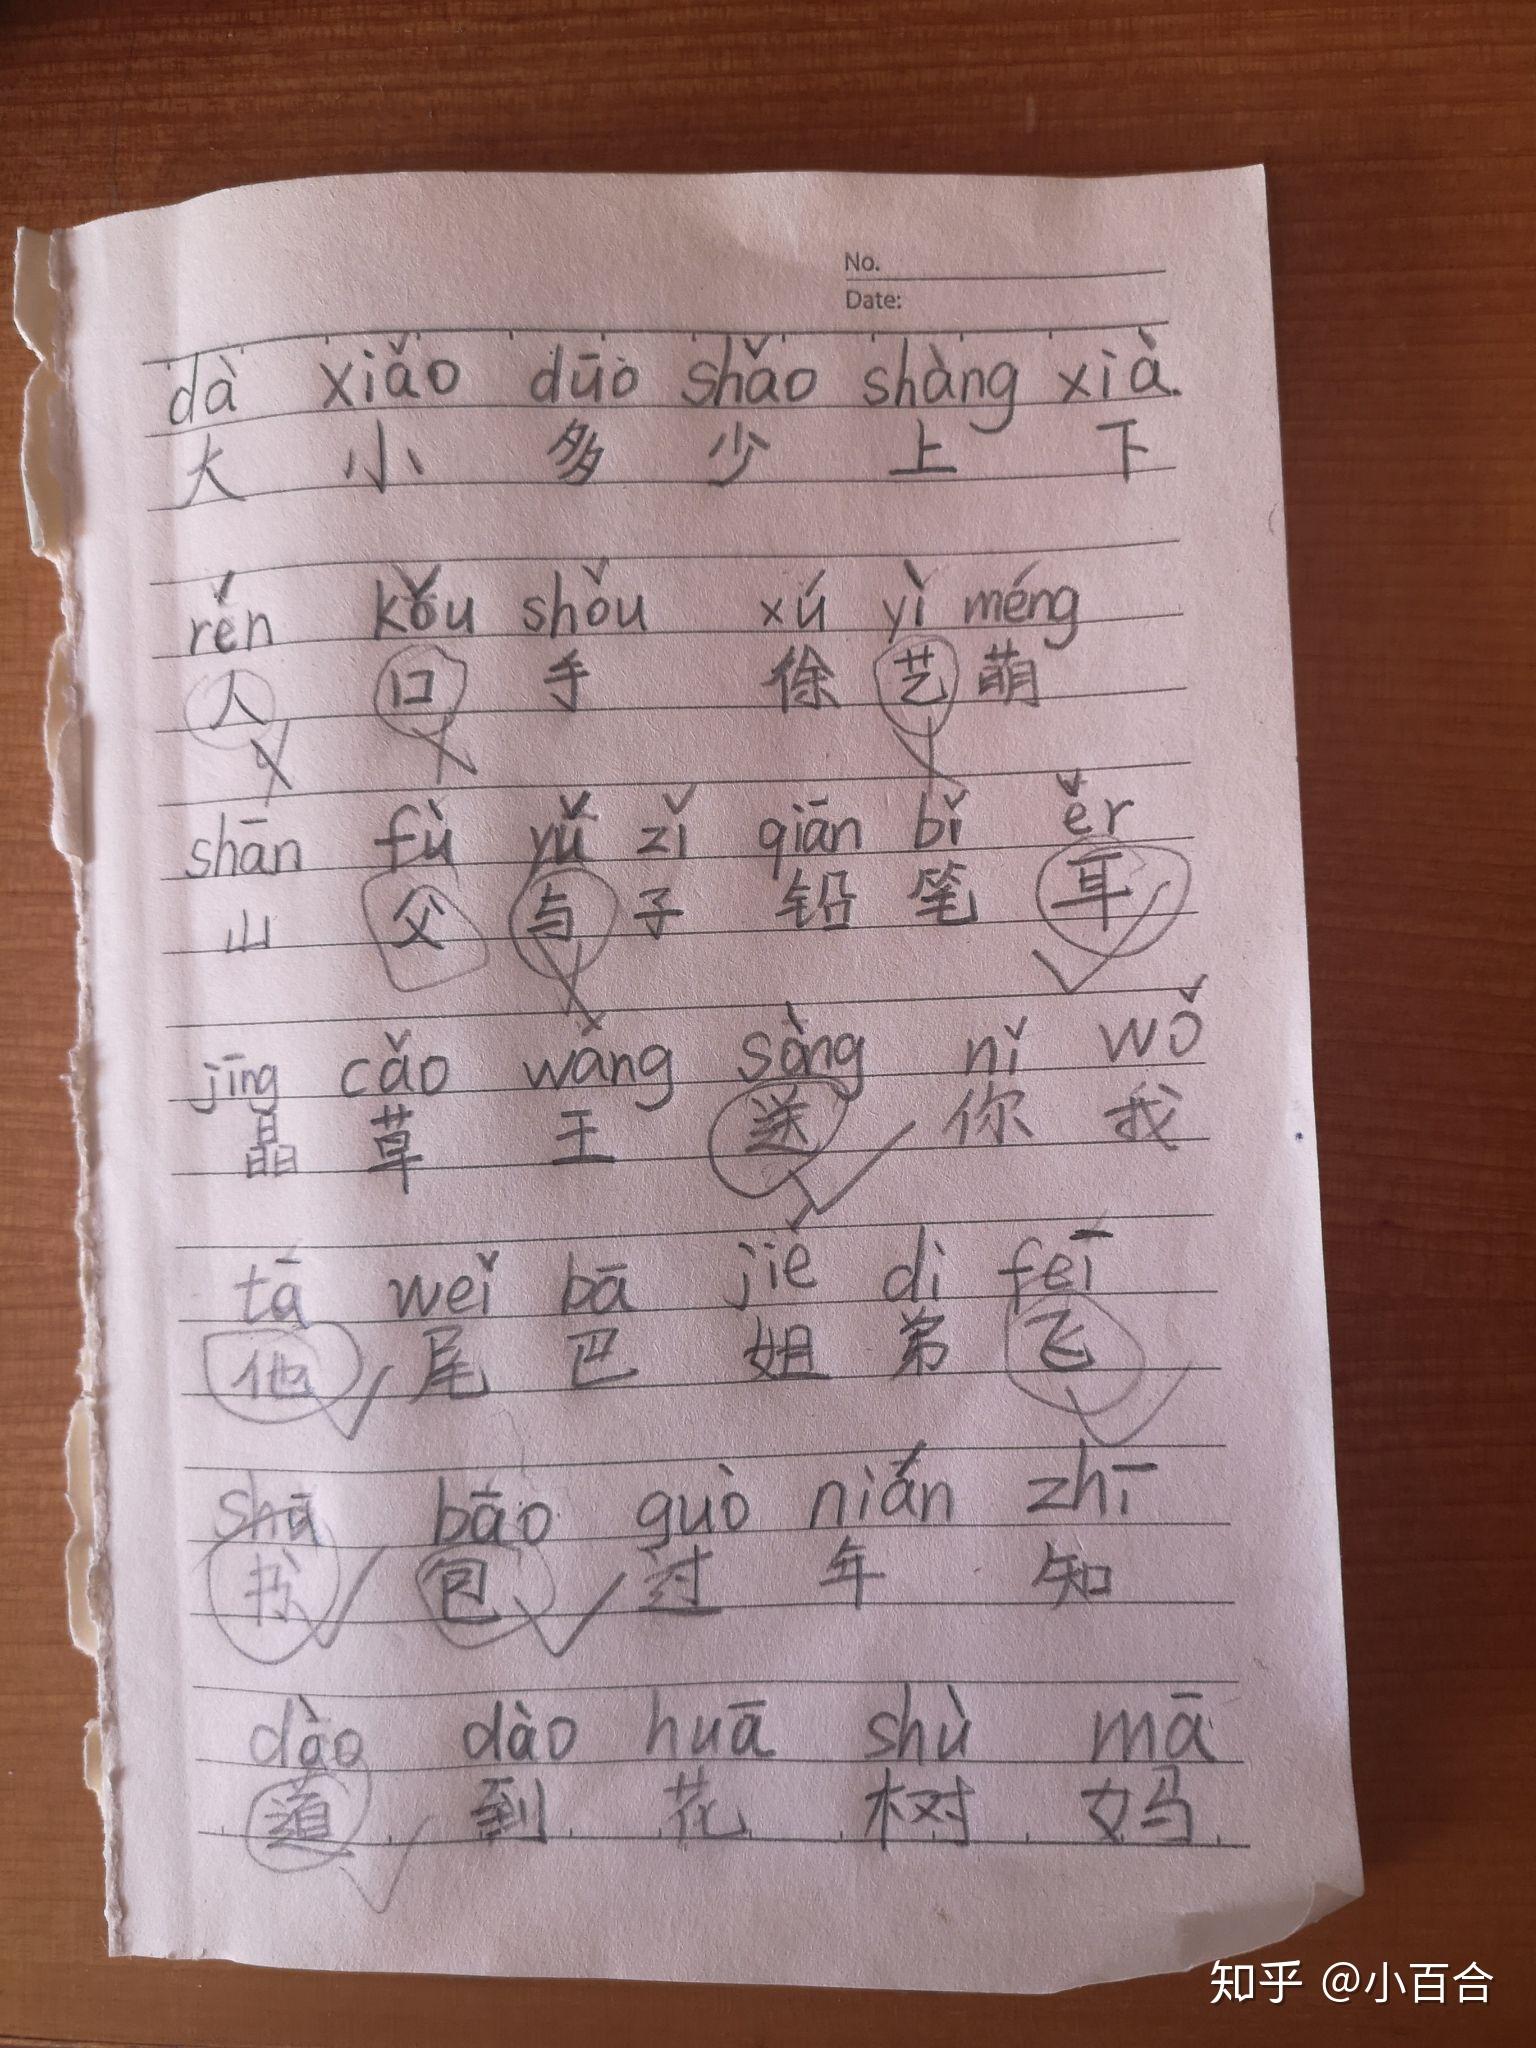 No.
Date:
dà xiǎo duō shǎo shàng xià
大 小 多 少 上 下
rěn kǒu shǒu xú yì méng
人 口 手 徐 艺 萌
shān fù yǔ zǐ qiān bǐ ěr
山 父 与 子 铅 笔 耳
jīng cǎo wáng sòng nǐ wǒ
晶 草 王 送 你 我
tā weǐ bā jiě di feī
他 尾 巴 姐 弟 飞
shū bāo guò nián zhī
书 包 过 年 知
dào dào huā shù mā
道 到 花 树 妈
知乎 @小百合